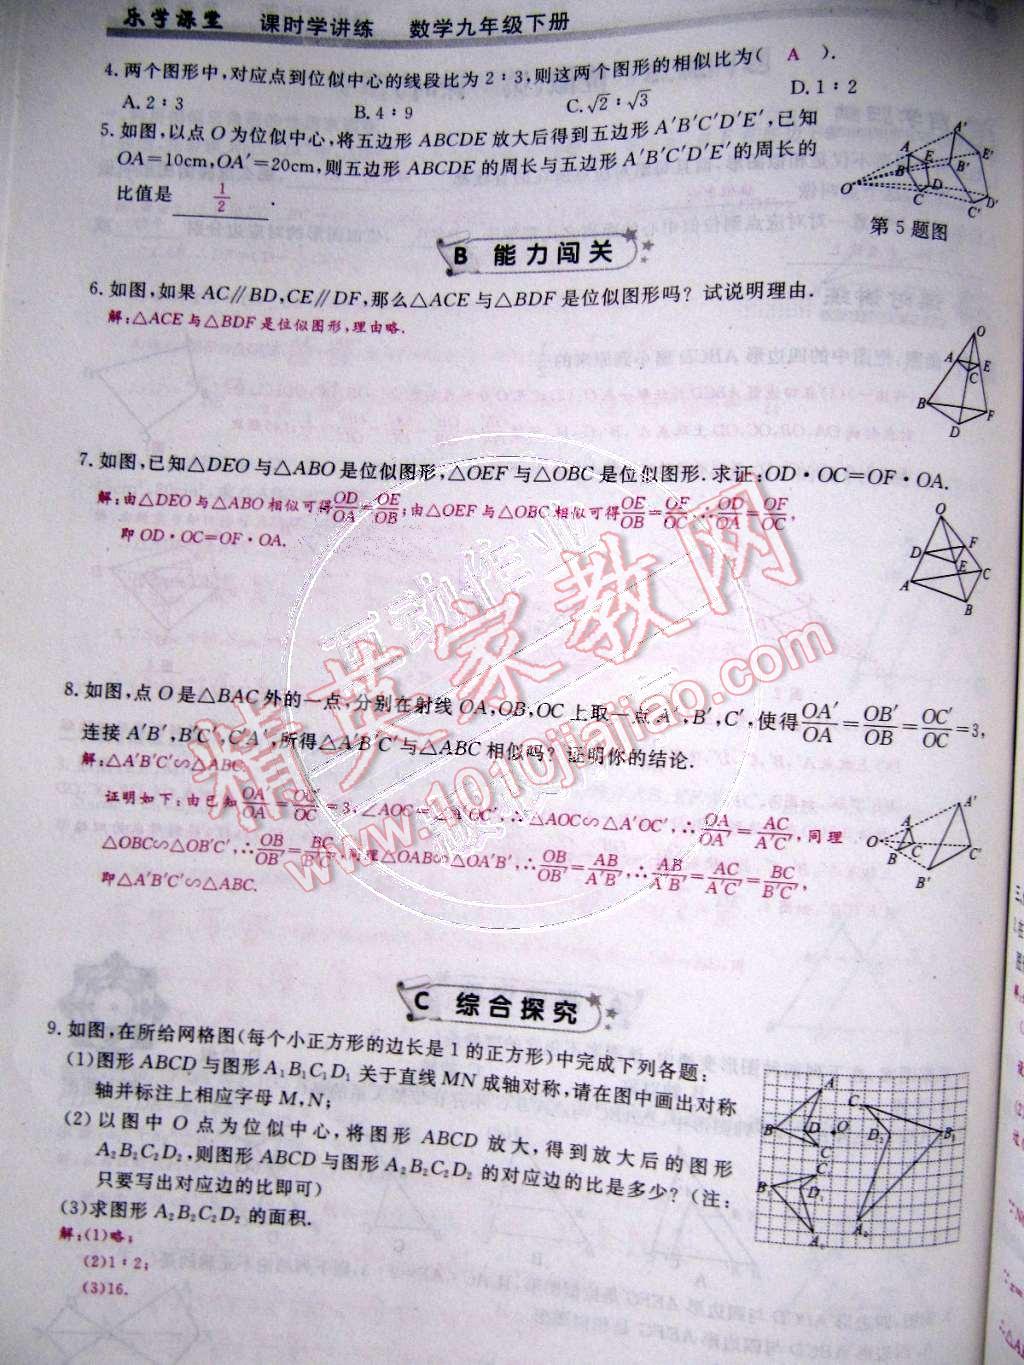 乐学课堂 课时学讲练 数学九年级下册
4.两个图形中,对应点到位似中心的线段比为2∶3,则这两个图形的相似比为( A ).
A.2∶3 B.4∶9 C.√2∶√3 D.1∶2
5.如图,以点O为位似中心,将五边形ABCDE放大后得到五边形A′B′C′D′E′,已知
OA=10cm,OA′=20cm,则五边形ABCDE的周长与五边形A′B′C′D′E′的周长的
比值是 1/2 .
第5题图
B 能力闯关
6.如图,如果AC∥BD,CE∥DF,那么△ACE与△BDF是位似图形吗?试说明理由.
解:△ACE与△BDF是位似图形,理由略.
7.如图,已知△DEO与△ABO是位似图形,△OEF与△OBC是位似图形.求证:OD·OC=OF·OA.
解:由△DEO与△ABO相似可得OD/OA=OE/OB;由△OEF与△OBC相似可得OE/OB=OF/OC,∴OD/OA=OF/OC,
即OD·OC=OF·OA.
8.如图,点O是△BAC外的一点,分别在射线OA,OB,OC上取一点A′,B′,C′,使得OA′/OA=OB′/OB=OC′/OC=3,
连接A′B′,B′C′,C′A′,所得△A′B′C′与△ABC相似吗?证明你的结论.
解:△A′B′C′∽△ABC.
证明如下:由已知OA′/OA=OC′/OC=3,∠AOC=∠A′OC′,∴△AOC∽△A′OC′,∴OA/OA′=AC/A′C′,同理
△OBC∽△OB′C′,∴OB/OB′=BC/B′C′,同理△OAB∽△OA′B′,∴OB/OB′=AB/A′B′,∴AB/A′B′=AC/A′C′=BC/B′C′,
即△A′B′C′∽△ABC.
C 综合探究
9.如图,在所给网格图(每个小正方形的边长是1的正方形)中完成下列各题:
(1)图形ABCD与图形A₁B₁C₁D₁关于直线MN成轴对称,请在图中画出对称
轴并标注上相应字母M,N;
(2)以图中O点为位似中心,将图形ABCD放大,得到放大后的图形
A₂B₂C₂D₂,则图形ABCD与图形A₂B₂C₂D₂的对应边的比是多少?(注:
只要写出对应边的比即可)
(3)求图形A₂B₂C₂D₂的面积.
解:(1)略;
(2)1∶2;
(3)16.
互动作业
精英家教网
www.1010jiajiao.com